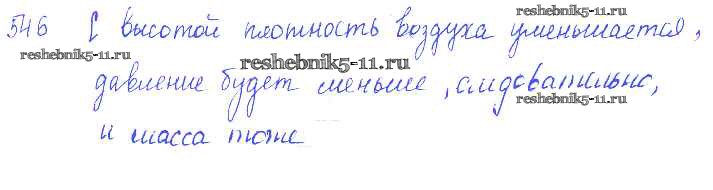 546 С высотой плотность воздуха уменьшается,
reshebnik5-11.ru
reshebnik5-11.ru
reshebnik5-11.ru
давление будет меньше, следовательно,
reshebnik5-11.ru
и масса тоже
reshebnik5-11.ru